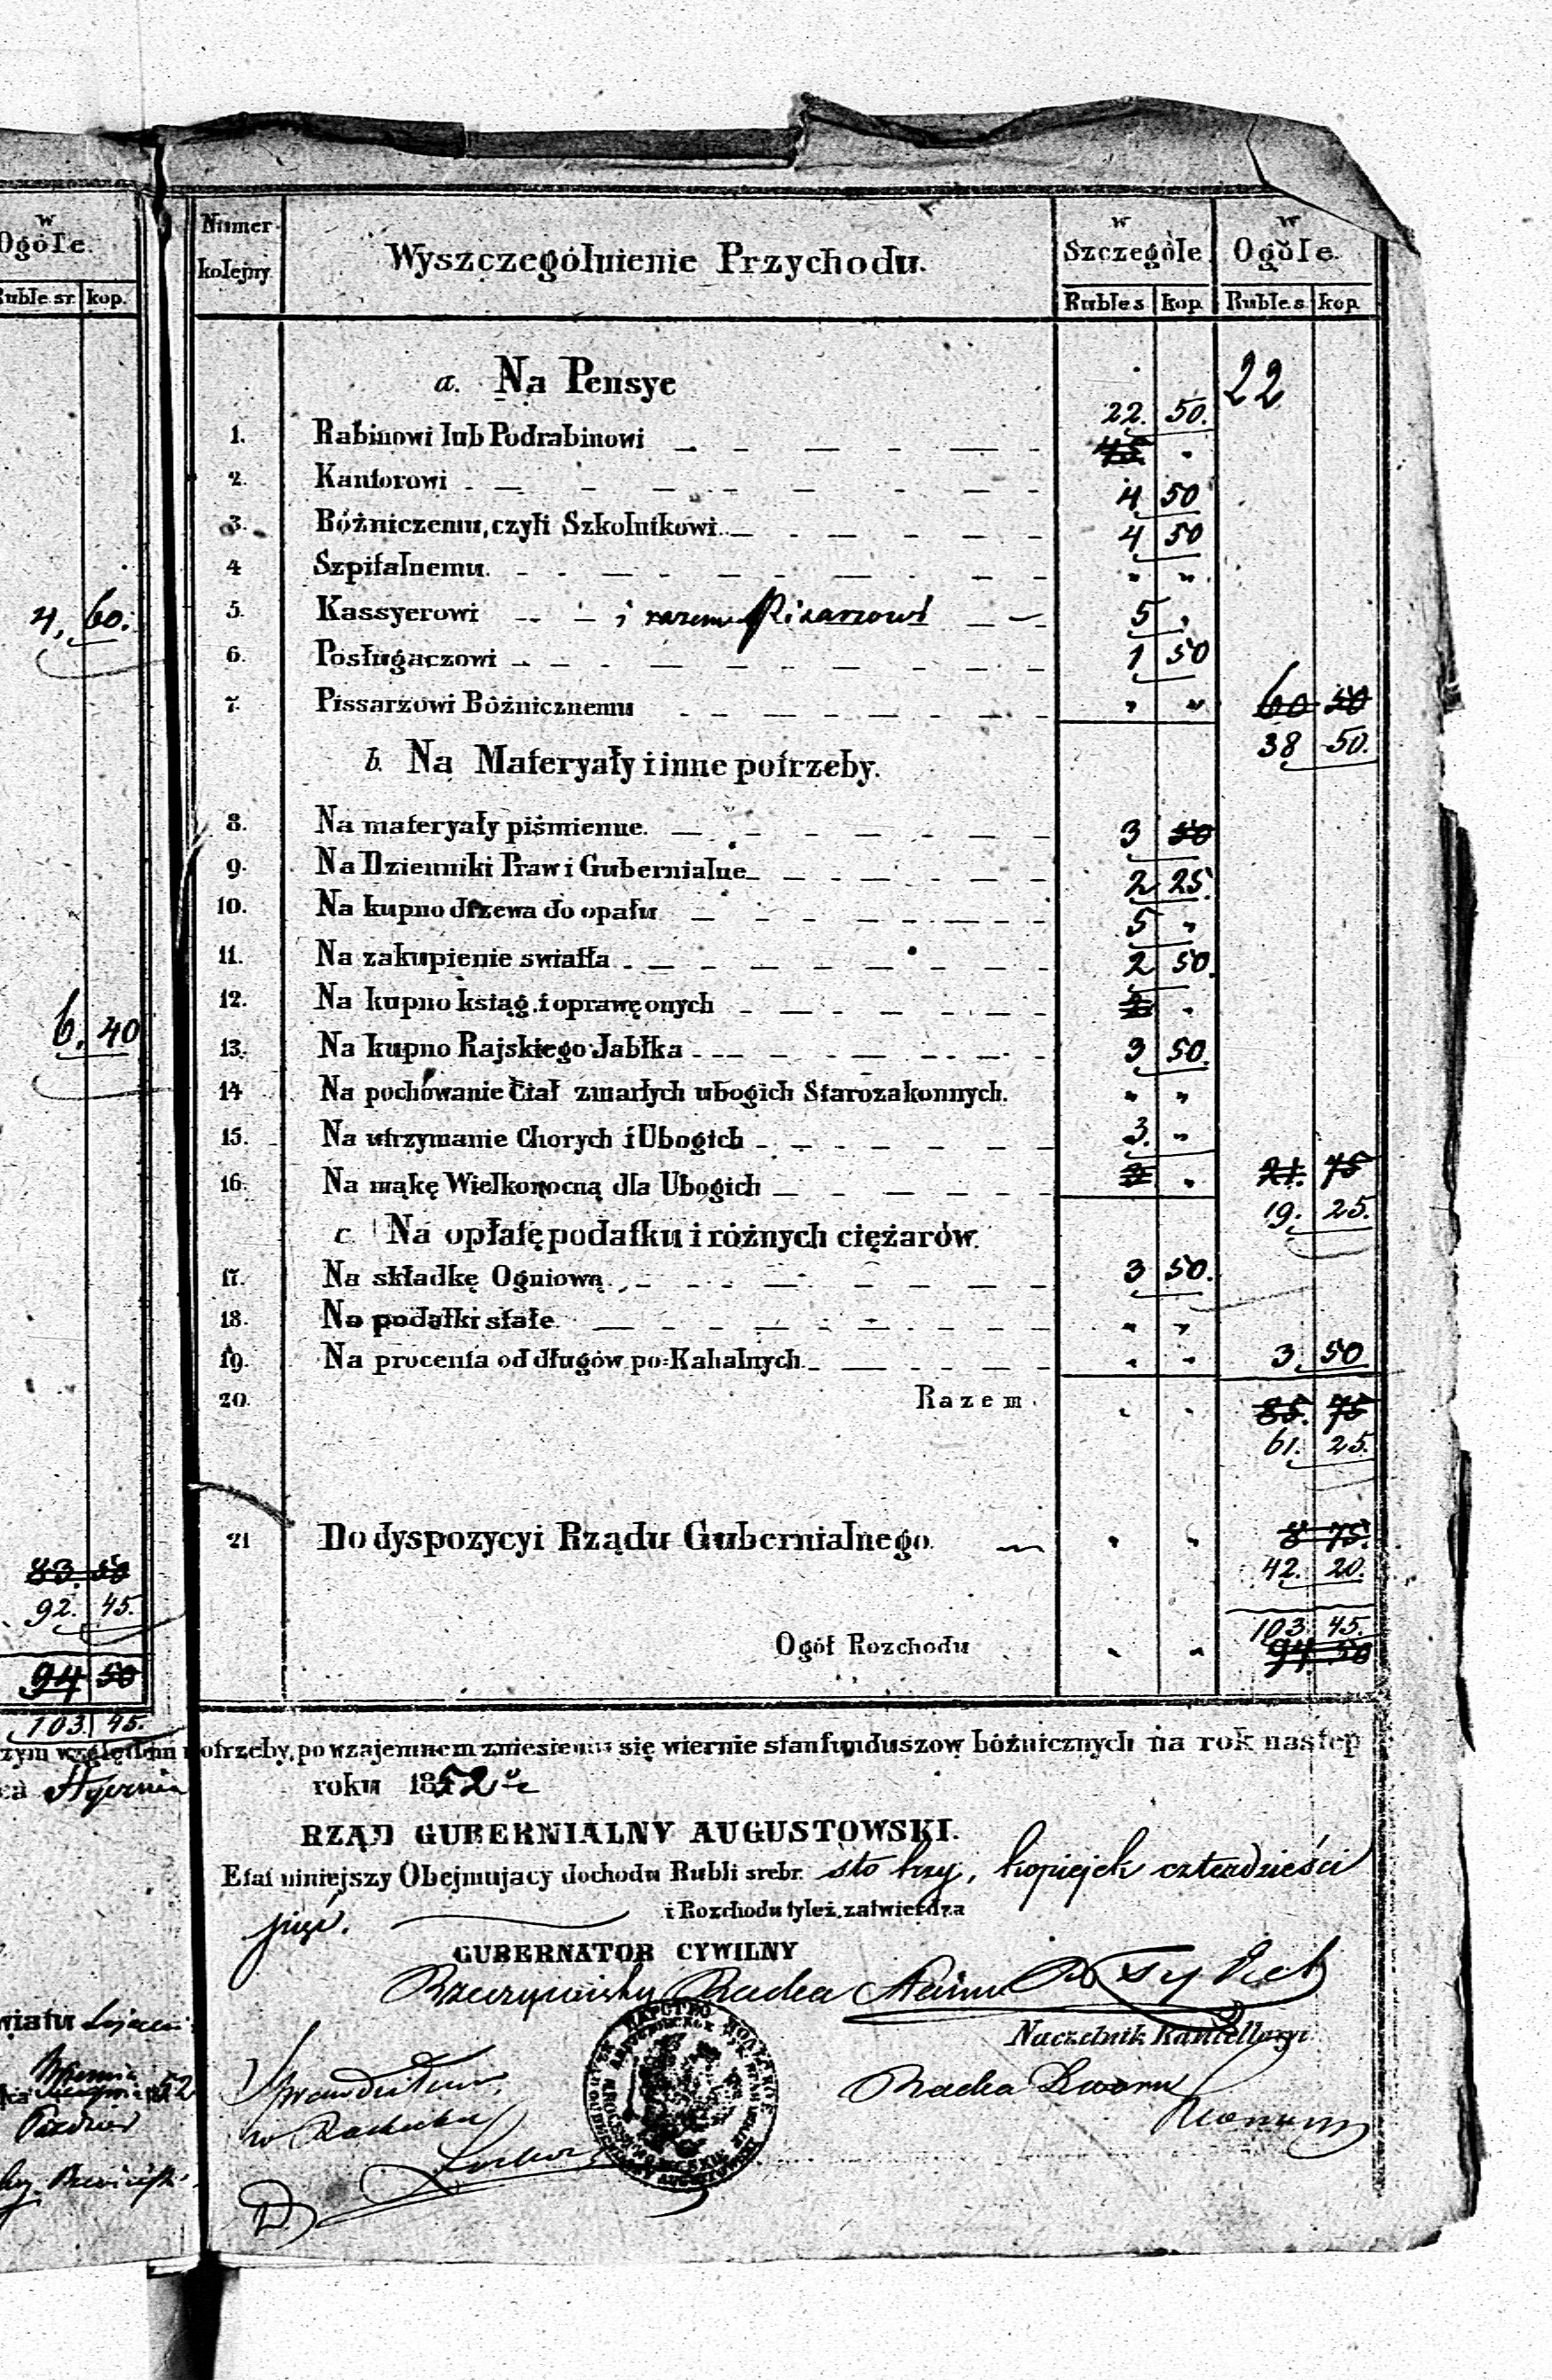 w
Ogóle.
Ruble sr. kop.
4. 60.
6. 40
83. 50
92. 45.
94 50
103. 45.
Numer kolejny
Wyszczególnienie Przychodu.
w Szczególe
w Ogóle.
Ruble s. kop. Ruble s. kop.
22
a. Na Pensye
1. Rabinowi lub Podrabinowi 22. 50.
45 "
2. Kantorowi 4 50
3. Bóżniczemu, czyli Szkolnikowi 4 50
4 Szpitalnemu. " "
5. Kassyerowi i razem Pisarzowi 5 "
6. Posługaczowi 1 50
7. Pissarzowi Bóżnicznemu " " 60 50
38 50.
b. Na Materyały i inne potrzeby.
8. Na materyały piśmienne. 3 50
9. Na Dzienniki Praw i Gubernialne 2 25.
10. Na kupno drzewa do opału 5 "
11. Na zakupienie swiatła 2 50.
12. Na kupno ksiąg i oprawę onych 2 "
13. Na kupno Rajskiego Jabłka 3 50.
14 Na pochowanie Ciał zmarłych ubogich Starozakonnych. " "
15. Na utrzymanie Chorych i Ubogich 3. "
16. Na mąkę Wielkonocną dla Ubogich 2 " 21. 75
19. 25.
c. Na opłatę podatku i różnych ciężarów.
17. Na składkę Ogniową 3 50.
18. Na podatki stałe " "
19. Na procenta od długów po=Kahalnych " " 3. 50
20. Razem " " 85. 75
61. 25.
21 Do dyspozycyi Rządu Gubernialnego. " " 8 75.
42. 20.
103. 45.
Ogół Rozchodu " " 94. 50
potrzeby, po wzajemnem zniesieniu się wiernie stan funduszow bóżnicznych na rok następ
roku 1852
RZĄD GUBERNIALNY AUGUSTOWSKI.
Etat niniejszy Obejmujacy dochodu Rubli srebr. sto trzy, kopiejek czterdzieści
pięć. i Rozchodu tyleż, zatwierdza
GUBERNATOR CYWILNY
Rzeczywisty Radca
Naczelnik Kancellaryi
Radca Dworu